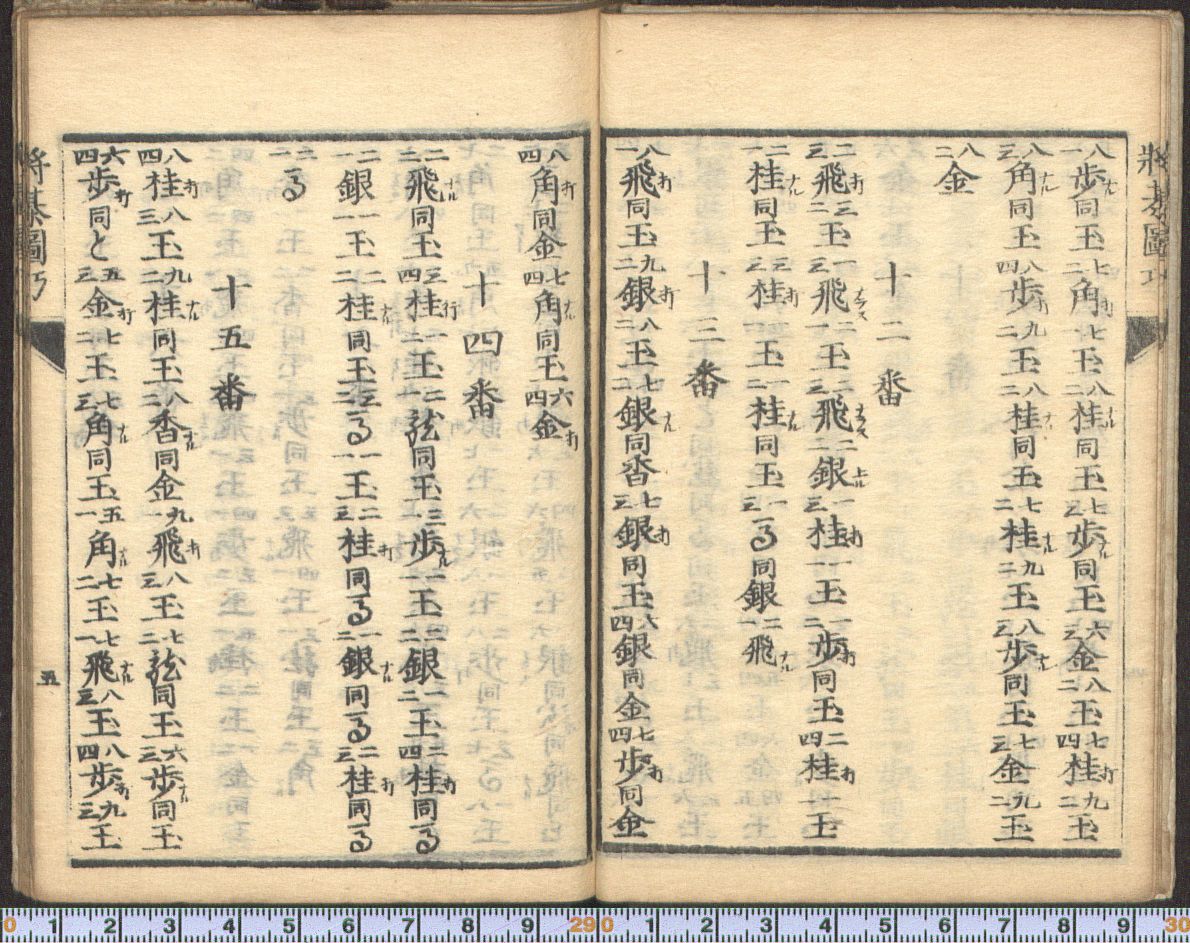 將棊圖巧
八一歩ナル同玉七二角打七一玉八二桂ナル同玉七三歩ナル同玉六三金八二玉七四桂打九二玉
八三角ナル同玉八四歩打九二玉八二桂ナル同玉七二桂ナル九二玉八三歩ナル同玉七三金九二玉
八二金
十二番
二三飛打三二玉一三飛ナラス二一玉二三飛ナラス二二銀上ル一三桂打一一玉一二歩打同玉二四桂打一一玉
二一桂ナル同玉三三桂打一一玉二一桂ナル同玉一三る同銀二一飛ナル
十三番
八一飛打同玉九二銀打八二玉七二銀ナル同香七三銀打同玉六四銀同金七四歩打同金
八四角打同金七四角ナル同玉六四金打
十四番
二二飛打同玉三四桂行一二玉二一弦同玉三二歩ナル一一玉二二銀一二玉二四桂打同る
二一銀一一玉二二桂ナル同玉三二る一一玉二三桂打同る一二銀ナル同る二三桂打同る
二一る
十五番
八四桂打八三玉九二桂ナル同玉八二香ナル同金九一飛打八三玉七二弦同玉六三歩ナル同玉
六四歩打同と五三金打七二玉七三角ナル同玉五一角ナル七二玉七一飛ナル八三玉八四歩打九三玉
將棊圖巧
五
0 1 2 3 4 5 6 7 8 9 29 0 1 2 3 4 5 6 7 8 9 30